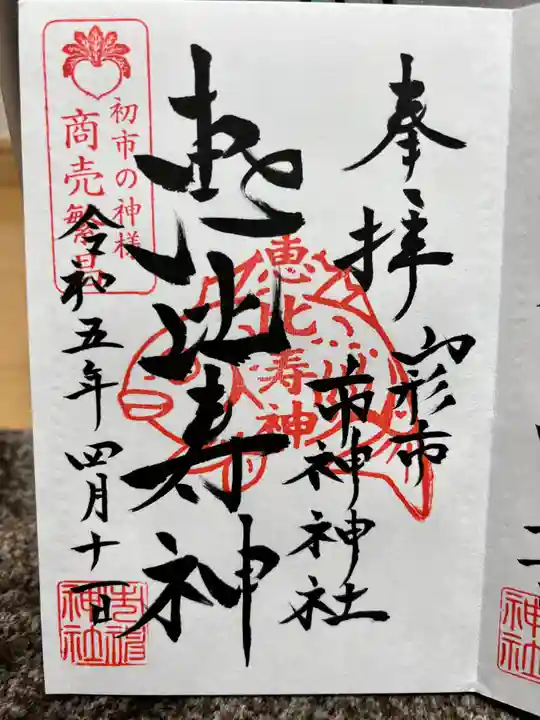 奉拝
山形市
市神神社
恵比寿神
恵比寿神
初市の神様
商売繁昌
令和五年四月十一日
神社
神社